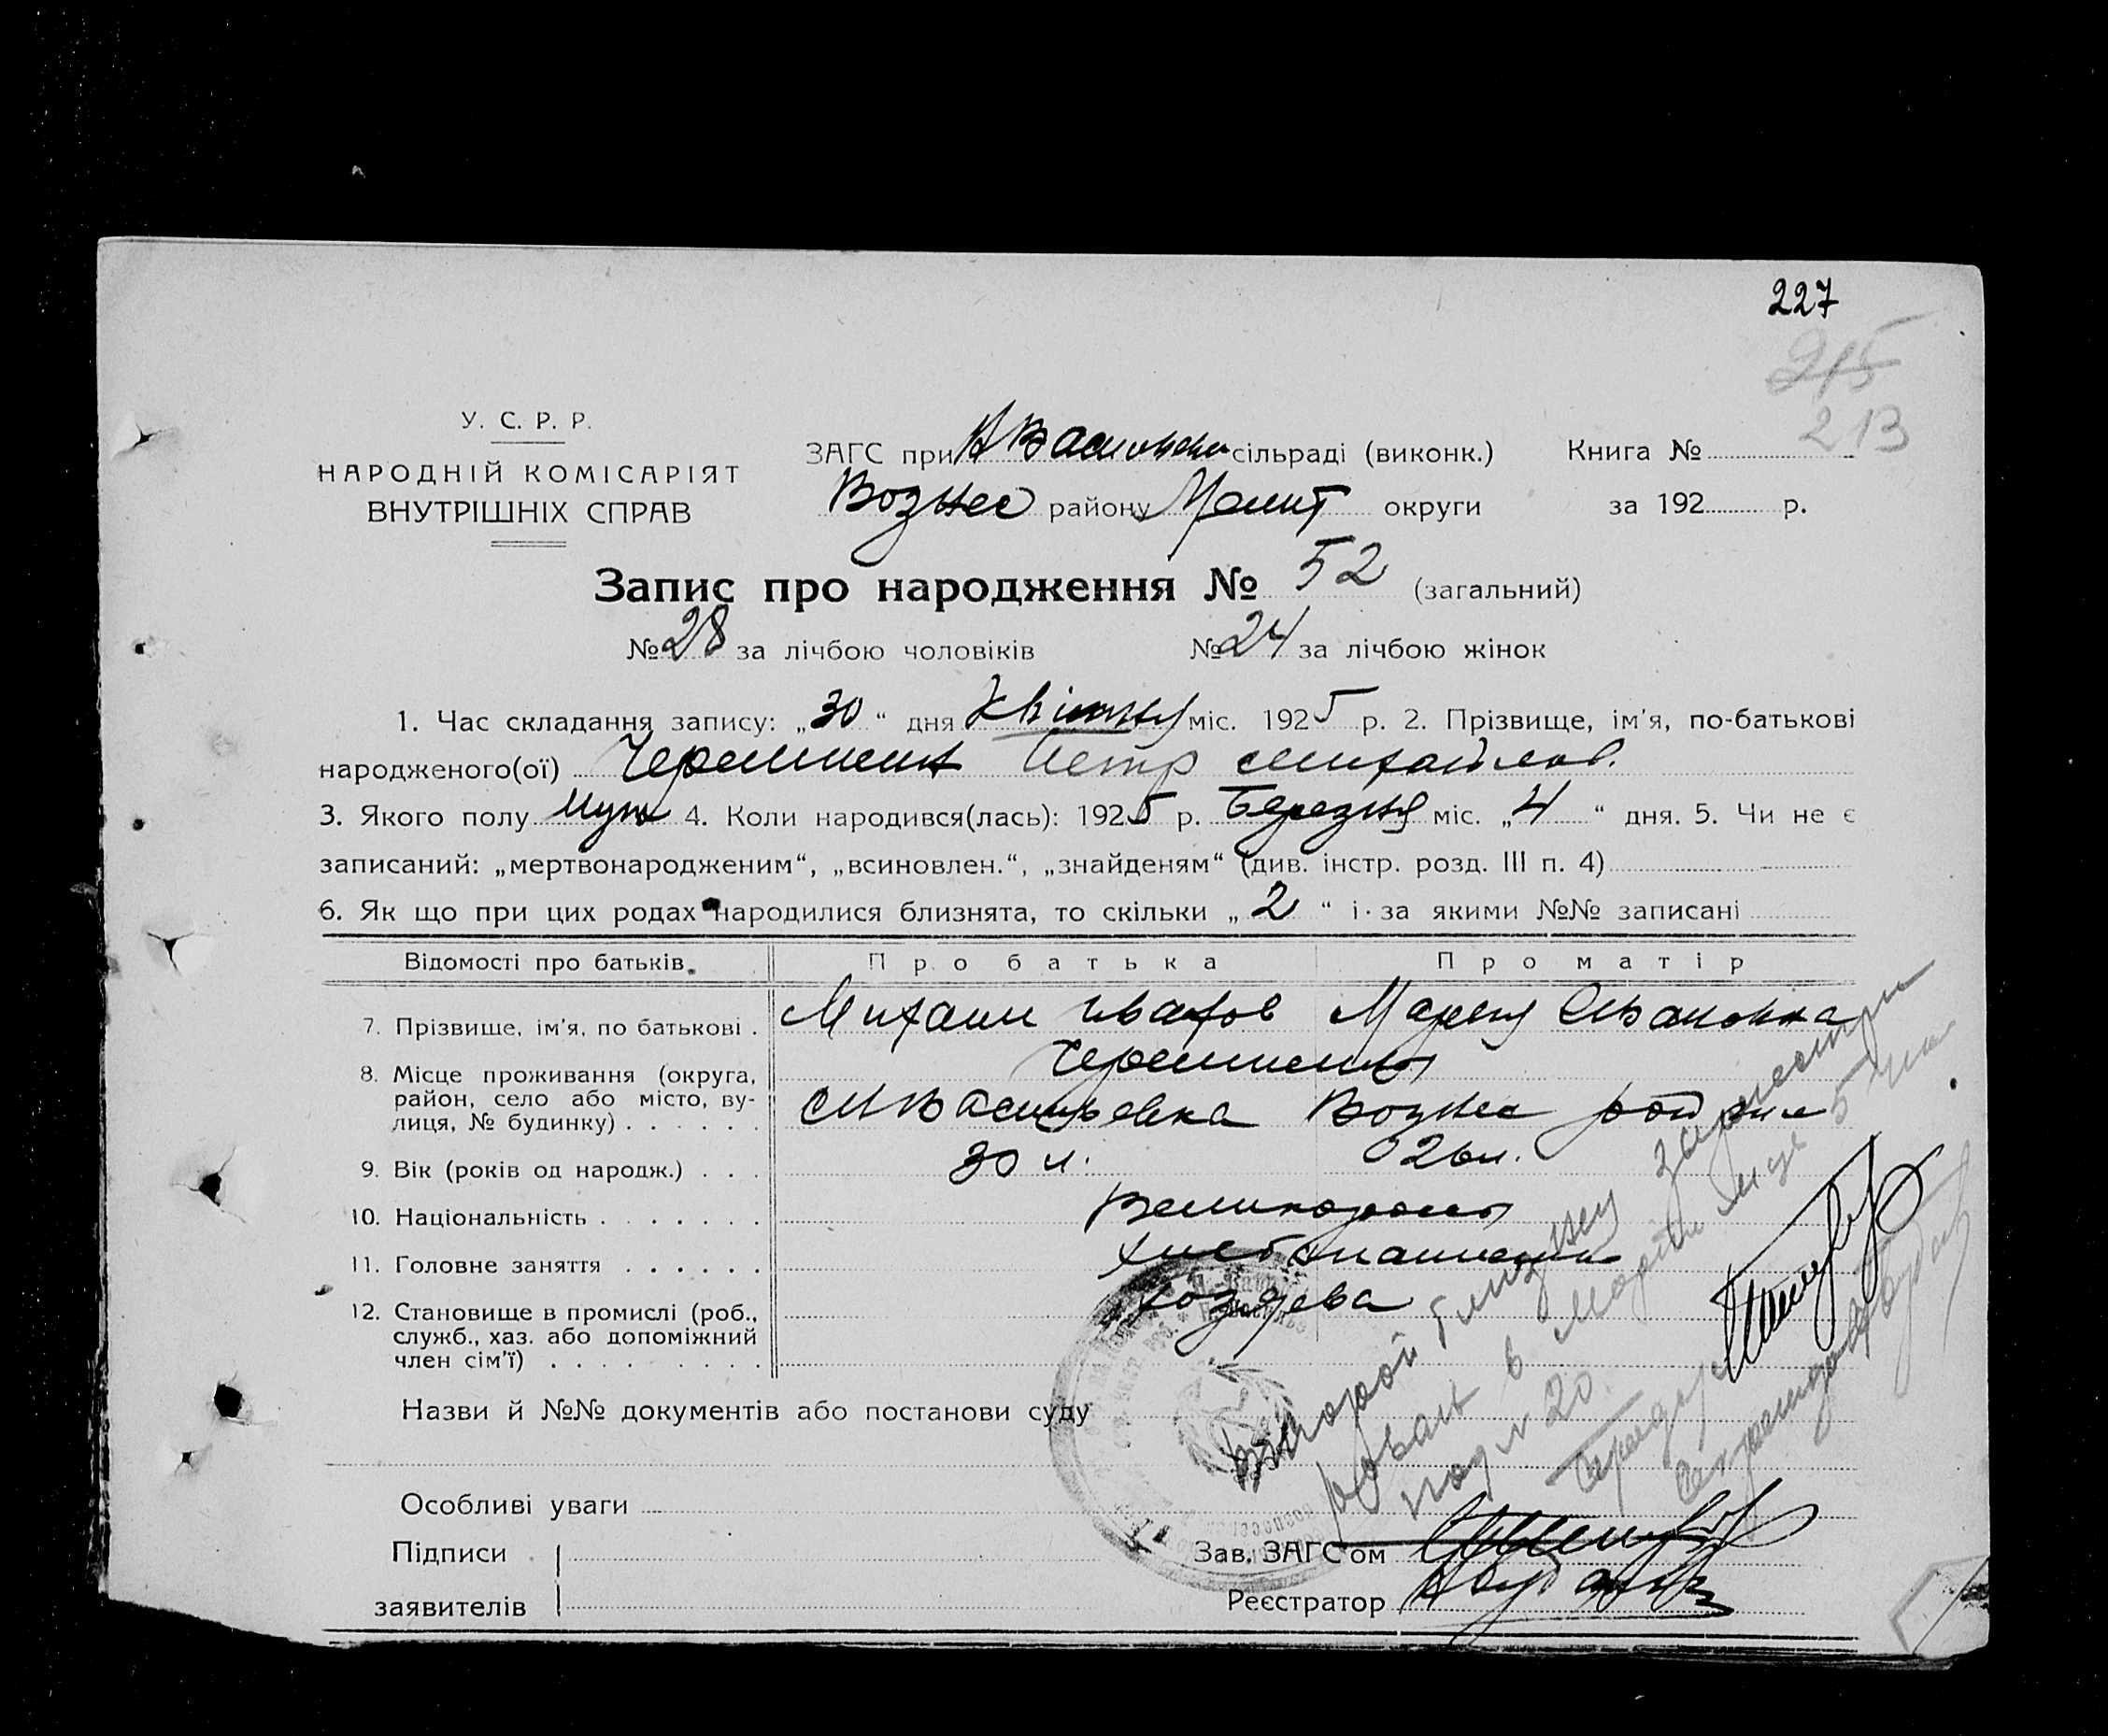 227
215
213
У. С. Р. Р.
НАРОДНІЙ КОМІСАРІЯТ
ВНУТРІШНІХ СПРАВ
ЗАГС при сільраді (виконк.) Книга №
Вознес району Меліт округи за 192 р.
Запис про народження № 52 (загальний)
№ 28 за лічбою чоловіків № 24 за лічбою жінок
1. Час складання запису: „30“ дня Квітня міс. 1925 р. 2. Прізвище, ім'я, по-батькові
народженого(ої) Петр Михайлов.
3. Якого полу муж 4. Коли народився(лась): 1925 р. Березня міс. „4“ дня. 5. Чи не є
записаний: „мертвонародженим“, „всиновлен.“, „знайденям“ (див. інстр. розд. III п. 4)
6. Як що при цих родах народилися близнята, то скільки „2“ і за якими №№ записані
Відомості про батьків. Про батька Про матір
7. Прізвище, ім'я, по батькові . Михаил Иванов Мария Ивановна
8. Місце проживання (округа,
район, село або місто, ву-
лиця, № будинку) . . . . . . Васильевка Вознес района
9. Вік (років од народж.) . . . 30 л. 26 л.
10. Національність . . . . . . . Великороссы
11. Головне заняття . . . . . . хлебопашцы
12. Становище в промислі (роб.,
служб., хаз. або допоміжний
член сім'ї) . . . . . . . . . хозяева
Назви й №№ документів або постанови суду
Второй близнец зарегистри
рован в марте м-це 5 чис
под № 20.
Особливі уваги
Підписи
заявителів
Зав. ЗАГС'ом
Реєстратор